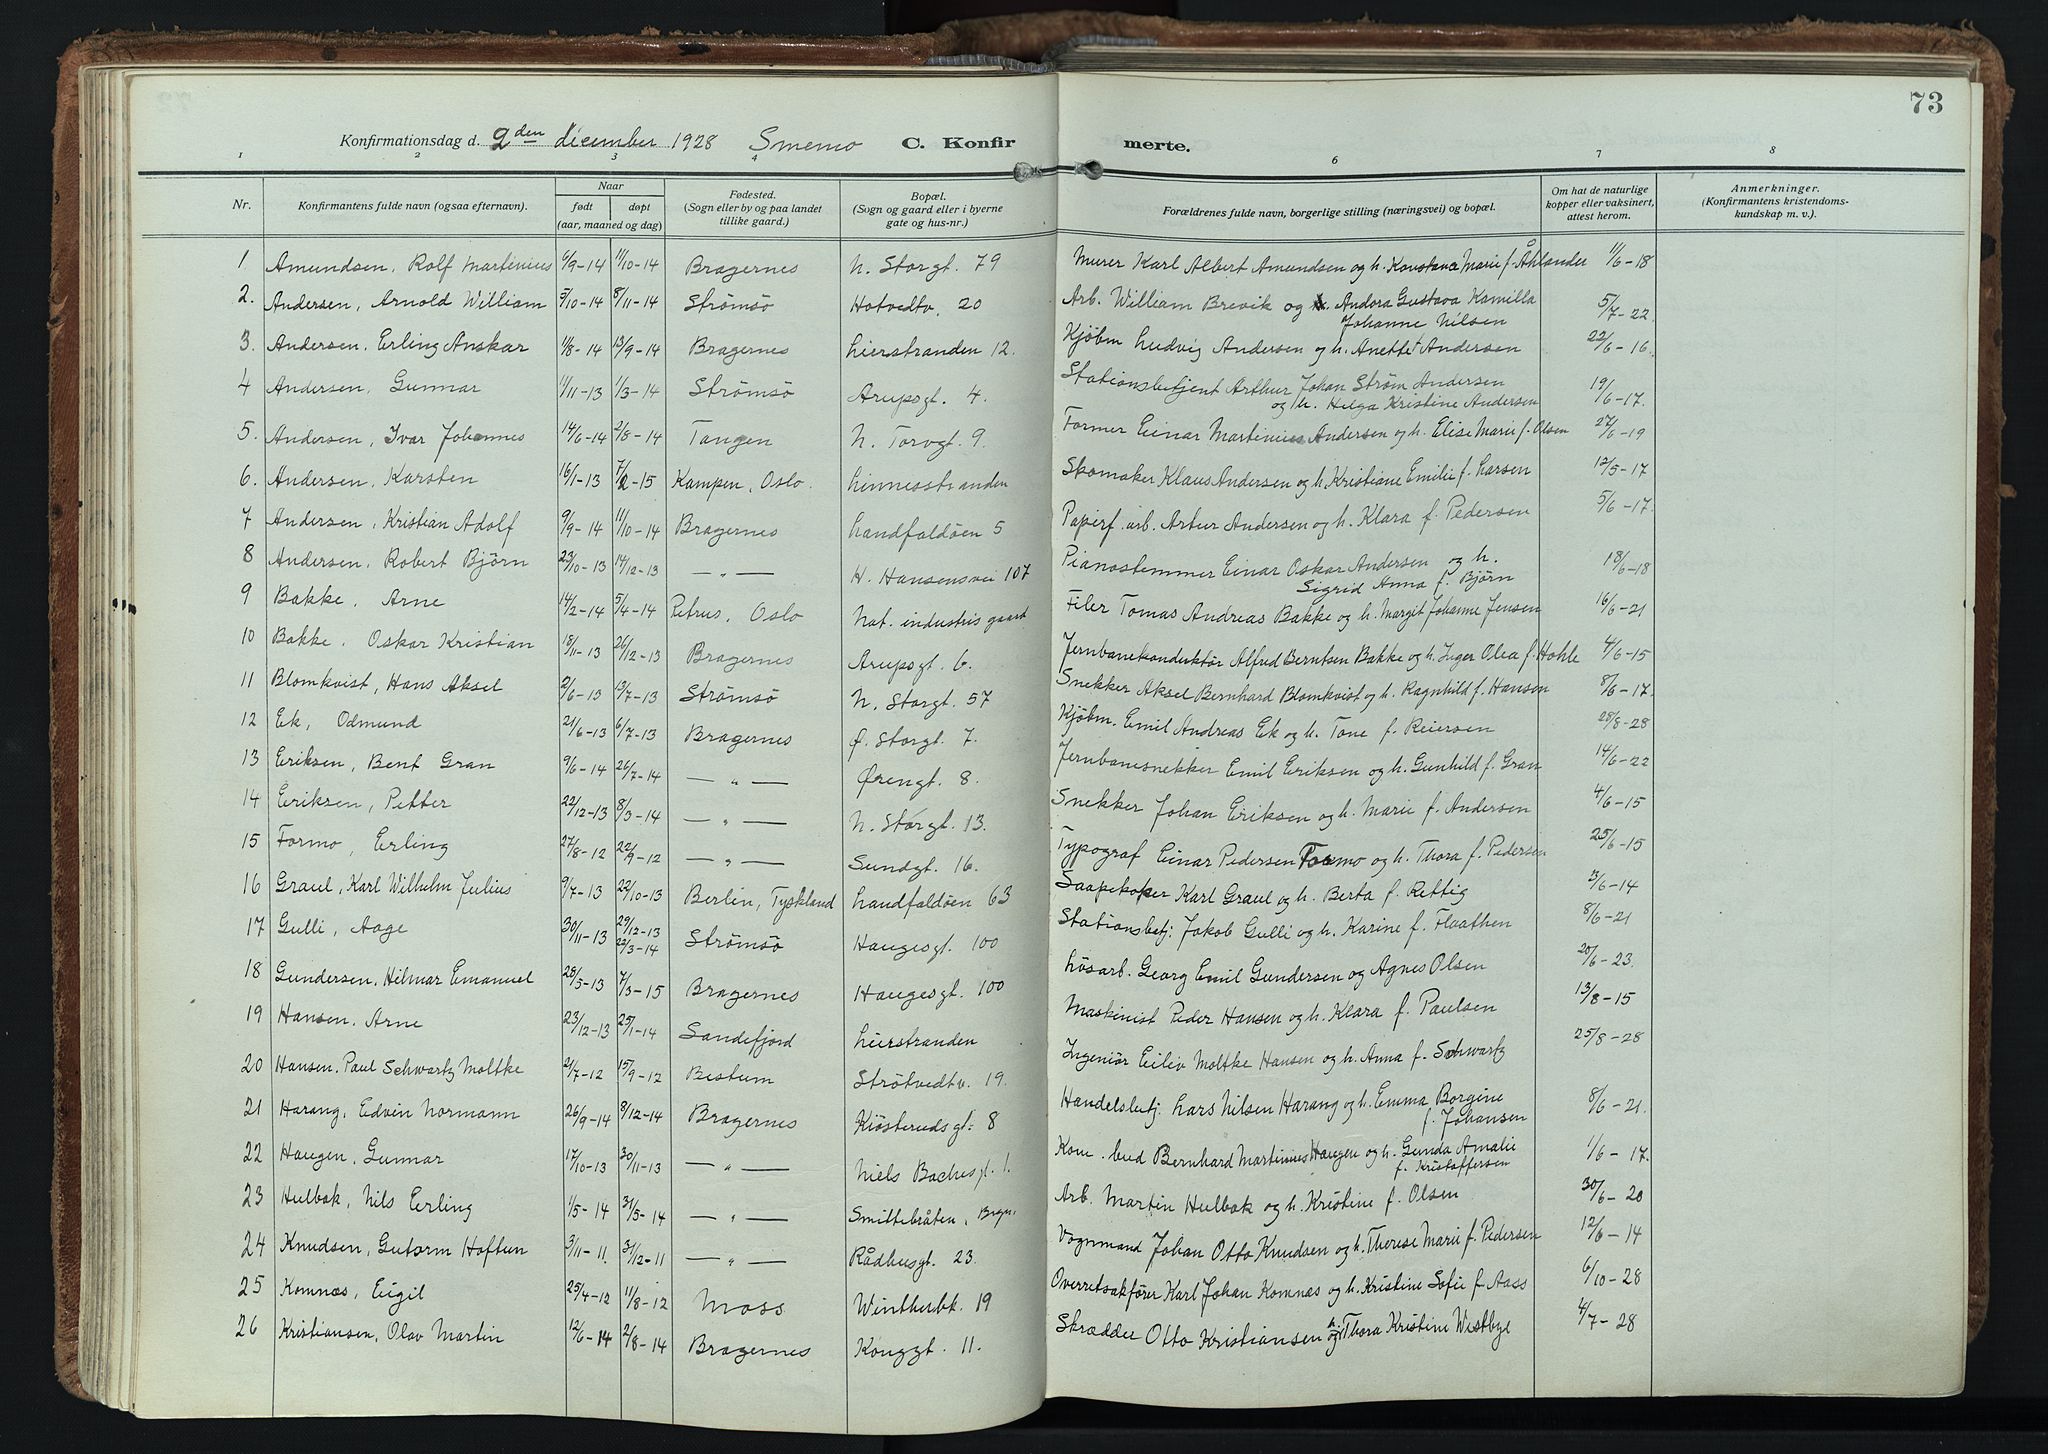 73
Konfirmationsdag d. 2den december 1928 Smemo C. Konfirmerte.
1 2 3 4 6 7 8
Nr. Konfirmantens fulde navn (ogsaa efternavn). Naar født døpt (aar, maaned og dag) Fødested. (Sogn eller by og paa landet tillike gaard.) Bopæl. (Sogn og gaard eller i byerne gate og hus-nr.) Forældrenes fulde navn, borgerlige stilling (næringsvei) og bopæl. Om hat de naturlige kopper eller vaksinert, attest herom. Anmerkninger. (Konfirmantens kristendomskundskap m. v.).
1 Amundsen, Rolf Martinius 6/9-14 11/10-14 Bragernes N. Storgt. 79 Murer Karl Albert Amundsen og h. Konstanse Marie f. Åhlander 11/6-18
2. Andersen, Arnold William 5/10-14 8/11-14 Strømsö Hotvedtv. 20 Arb. William Brevik og Andora Gustava Kamilla Johanne Nilsen 5/7-22
3. Andersen, Erling Anskar 11/8-14 13/9-14 Bragernes Lierstranden 12. Kjøbm Ludvig Andersen og h. Anette Andersen 22/6-16
4 Andersen, Gunnar 11/11-13 1/3-14 Strømsö Arupsgt. 4. Stationsbetjent Arthur Johan Strøm Andersen og h. Helga Kristine Andersen 19/6-17.
5. Andersen, Ivar Johannes 14/6-14 2/8-14 Tangen N. Torvgt. 9 Former Einar Martinius Andersen og h. Elise Marie f. Olsen 27/6-19
6. Andersen, Karsten 16/1-13 7/2-15 Kampen, Oslo. Linnesstranden Skomaker Klaus Andersen og h. Kristiane Emilie f. Larsen 12/5-17
7 Andersen, Kristian Adolf 9/9-14 11/10-14 Bragernes Landfaldöen 5 Papirf. arb. Artur Andersen og h. Klara f. Pedersen 5/6-17.
8 Andersen, Robert Björn 23/10-13 14/12-13 — " — H. Hansensvei 107 Pianostemmer Einar Oskar Andersen og h. Sigrid Anna f. Björn 18/6-18
9 Bakke, Arne 14/2-14 5/4-14 Petrus, Oslo Nat. industris gaard Filer Tomas Andreas Bakke og h. Margit Johanne Jensen 16/6-21
10 Bakke, Oskar Kristian 18/11-13 26/12-13 Bragernes Arupsgt. 6. Jernbanekonduktör Alfred Berntsen Bakke og h. Inger Olea f. Hohle 4/6-15
11 Blomkvist, Hans Aksel 2/6-13 13/7-13 Strømsö N. Storgt. 57 Snekker Aksel Bernhard Blomkvist og h. Ragnhild f. Hansen 8/6-17.
12 Ek, Odmund 21/6-13 6/7-13 Bragernes Ø. Storgt. 7. Kjøbm. Emil Andreas Ek og h. Tone f. Reiersen 28/8-28
13 Eriksen, Bent Gran 9/6-14 26/7-14 — " — Ørengt. 8. Jernbanesnekker Emil Eriksen og h. Gunhild f. Gran 14/6-22
14 Eriksen, Petter 22/12-13 8/3-14 — " — N. Storgt. 13. Snekker Johan Eriksen og h. Marie f. Andersen 4/6-15
15 Formo, Erling 27/8-12 22/9-12 — " — Sundgt. 16. Typograf Einar Pedersen Formo og h. Thora f. Pedersen 25/6-15
16 Graul, Karl Wilhelm Julius 9/7-13 22/10-13 Berlin, Tyskland Landfaldöen 63 Saapekoker Karl Graul og h. Berta f. Rettig 3/6-14
17 Gulli, Aage 30/11-13 29/12-13 22/3-14 Strømsö Haugesgt. 100 Stationsbetj. Jakob Gulli og h. Karine f. Flaathen 8/6-21
18 Gundersen, Hilmar Emanuel 25/5-13 7/3-15 Bragernes Haugesgt. 100 Løsarb. Georg Emil Gundersen og Agnes Olsen 20/6-23.
19 Hansen, Arne 23/12-13 25/1-14 Sandefjord Lierstranden Maskinist Peder Hansen og h. Klara f. Paulsen 13/8-15
20 Hansen, Paul Schwartz Moltke 21/7-12 15/9-12 Bestum Strötvedtv. 19. Ingeniör Eiliv Moltke Hansen og h. Anna f. Schwartz 25/8-28
21 Harang, Edvin Normann 26/9-14 8/12-14 Bragernes Kiösterudsgt. 8 Handelsbetj. Lars Nilsen Harang og h. Emma Borgine f. Johansen 8/6-21.
22 Haugen, Gunnar 17/10-13 30/11-13 — " — Niels Bachesgt. 1. Kom. bud Bernhard Martinius Haugen og h. Gunda Amalie f. Kristoffersen 1/6-17.
23 Hulbak, Nils Erling 1/5-14 31/5-14 — " — Smittebråten, Bragn. Arb. Martin Hulbak og h. Kristine f. Olsen 30/6-20
24 Knudsen, Gutorm Hoftun 3/11-11. 31/12-11 — " — Rådhusgt. 23. Vognmand Johan Otto Knudsen og h. Therese Marie f. Pedersen 12/6-14
25 Komnæs, Eigil 25/4-12 11/8-12 Moss Wintherbk. 19 Overretsakfører Karl Johan Komnæs og h. Kristine Sofie f. Aass 6/10-28
26 Kristiansen, Olav Martin 12/6-14 2/8-14 Bragernes Konggt. 11. Skrædder Otto Kristiansen og h. Thora Kristine Westbye 4/7-28